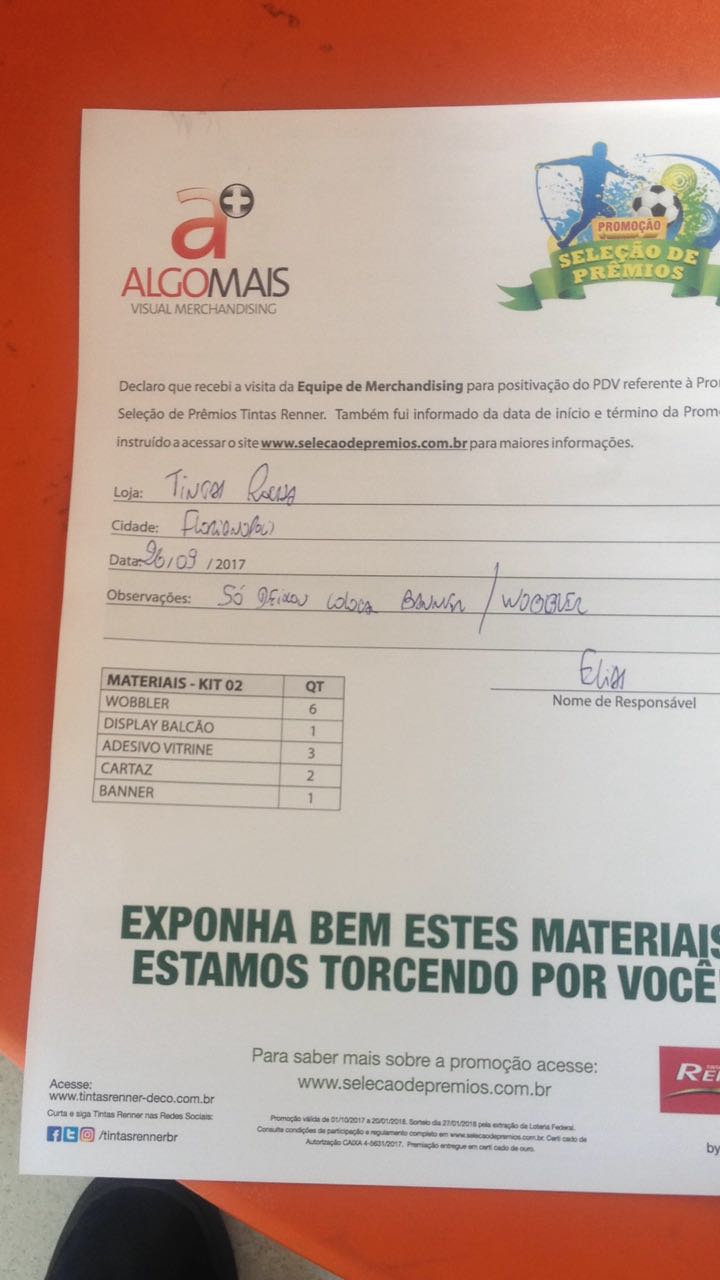 a+
ALGOMAIS
VISUAL MERCHANDISING
PROMOÇÃO
SELEÇÃO DE
PRÊMIOS
Declaro que recebi a visita da Equipe de Merchandising para positivação do PDV referente à Pro
Seleção de Prêmios Tintas Renner. Também fui informado da data de início e término da Prom
instruído a acessar o site www.selecaodepremios.com.br para maiores informações.
Loja: Tintas
Cidade: Florianopolis
Data: 26/09 / 2017
Observações: Só deixou coloca BANNER / WOBBLER
Elias
Nome de Responsável
MATERIAIS - KIT 02 QT
WOBBLER 6
DISPLAY BALCÃO 1
ADESIVO VITRINE 3
CARTAZ 2
BANNER 1
EXPONHA BEM ESTES MATERIAIS
ESTAMOS TORCENDO POR VOCÊ
Para saber mais sobre a promoção acesse:
www.selecaodepremios.com.br
RE
by
Acesse:
www.tintasrenner-deco.com.br
Curta e siga Tintas Renner nas Redes Sociais:
/tintasrennerbr
Promoção válida de 01/10/2017 a 20/01/2018. Sorteio dia 27/01/2018 pela extração da Loteria Federal.
Consulte condições de participação e regulamento completo em www.selecaodepremios.com.br. Certi cado de
Autorização CAIXA 4-5631/2017. Premiação entregue em certi cado de ouro.